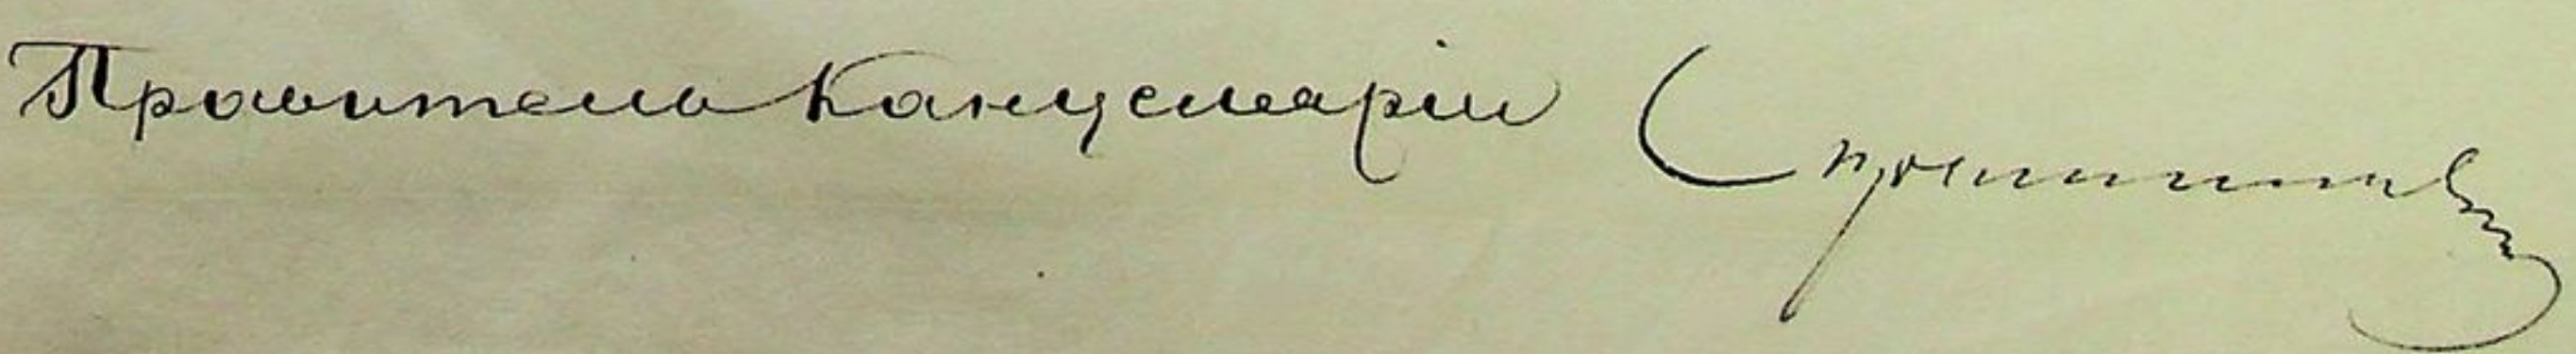 Правитель Канцеляріи